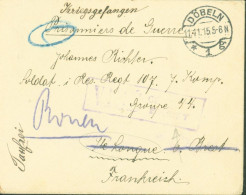 Kriegsgefangen
Prisonniers de Guerre
DÖBELN
11.4.15.5-6N
* 1
Johannes Richter
Soldat i Res Regt 107. 7. Komp.
Groupe
Rouen
Taxfrei
Brest
Frankreich